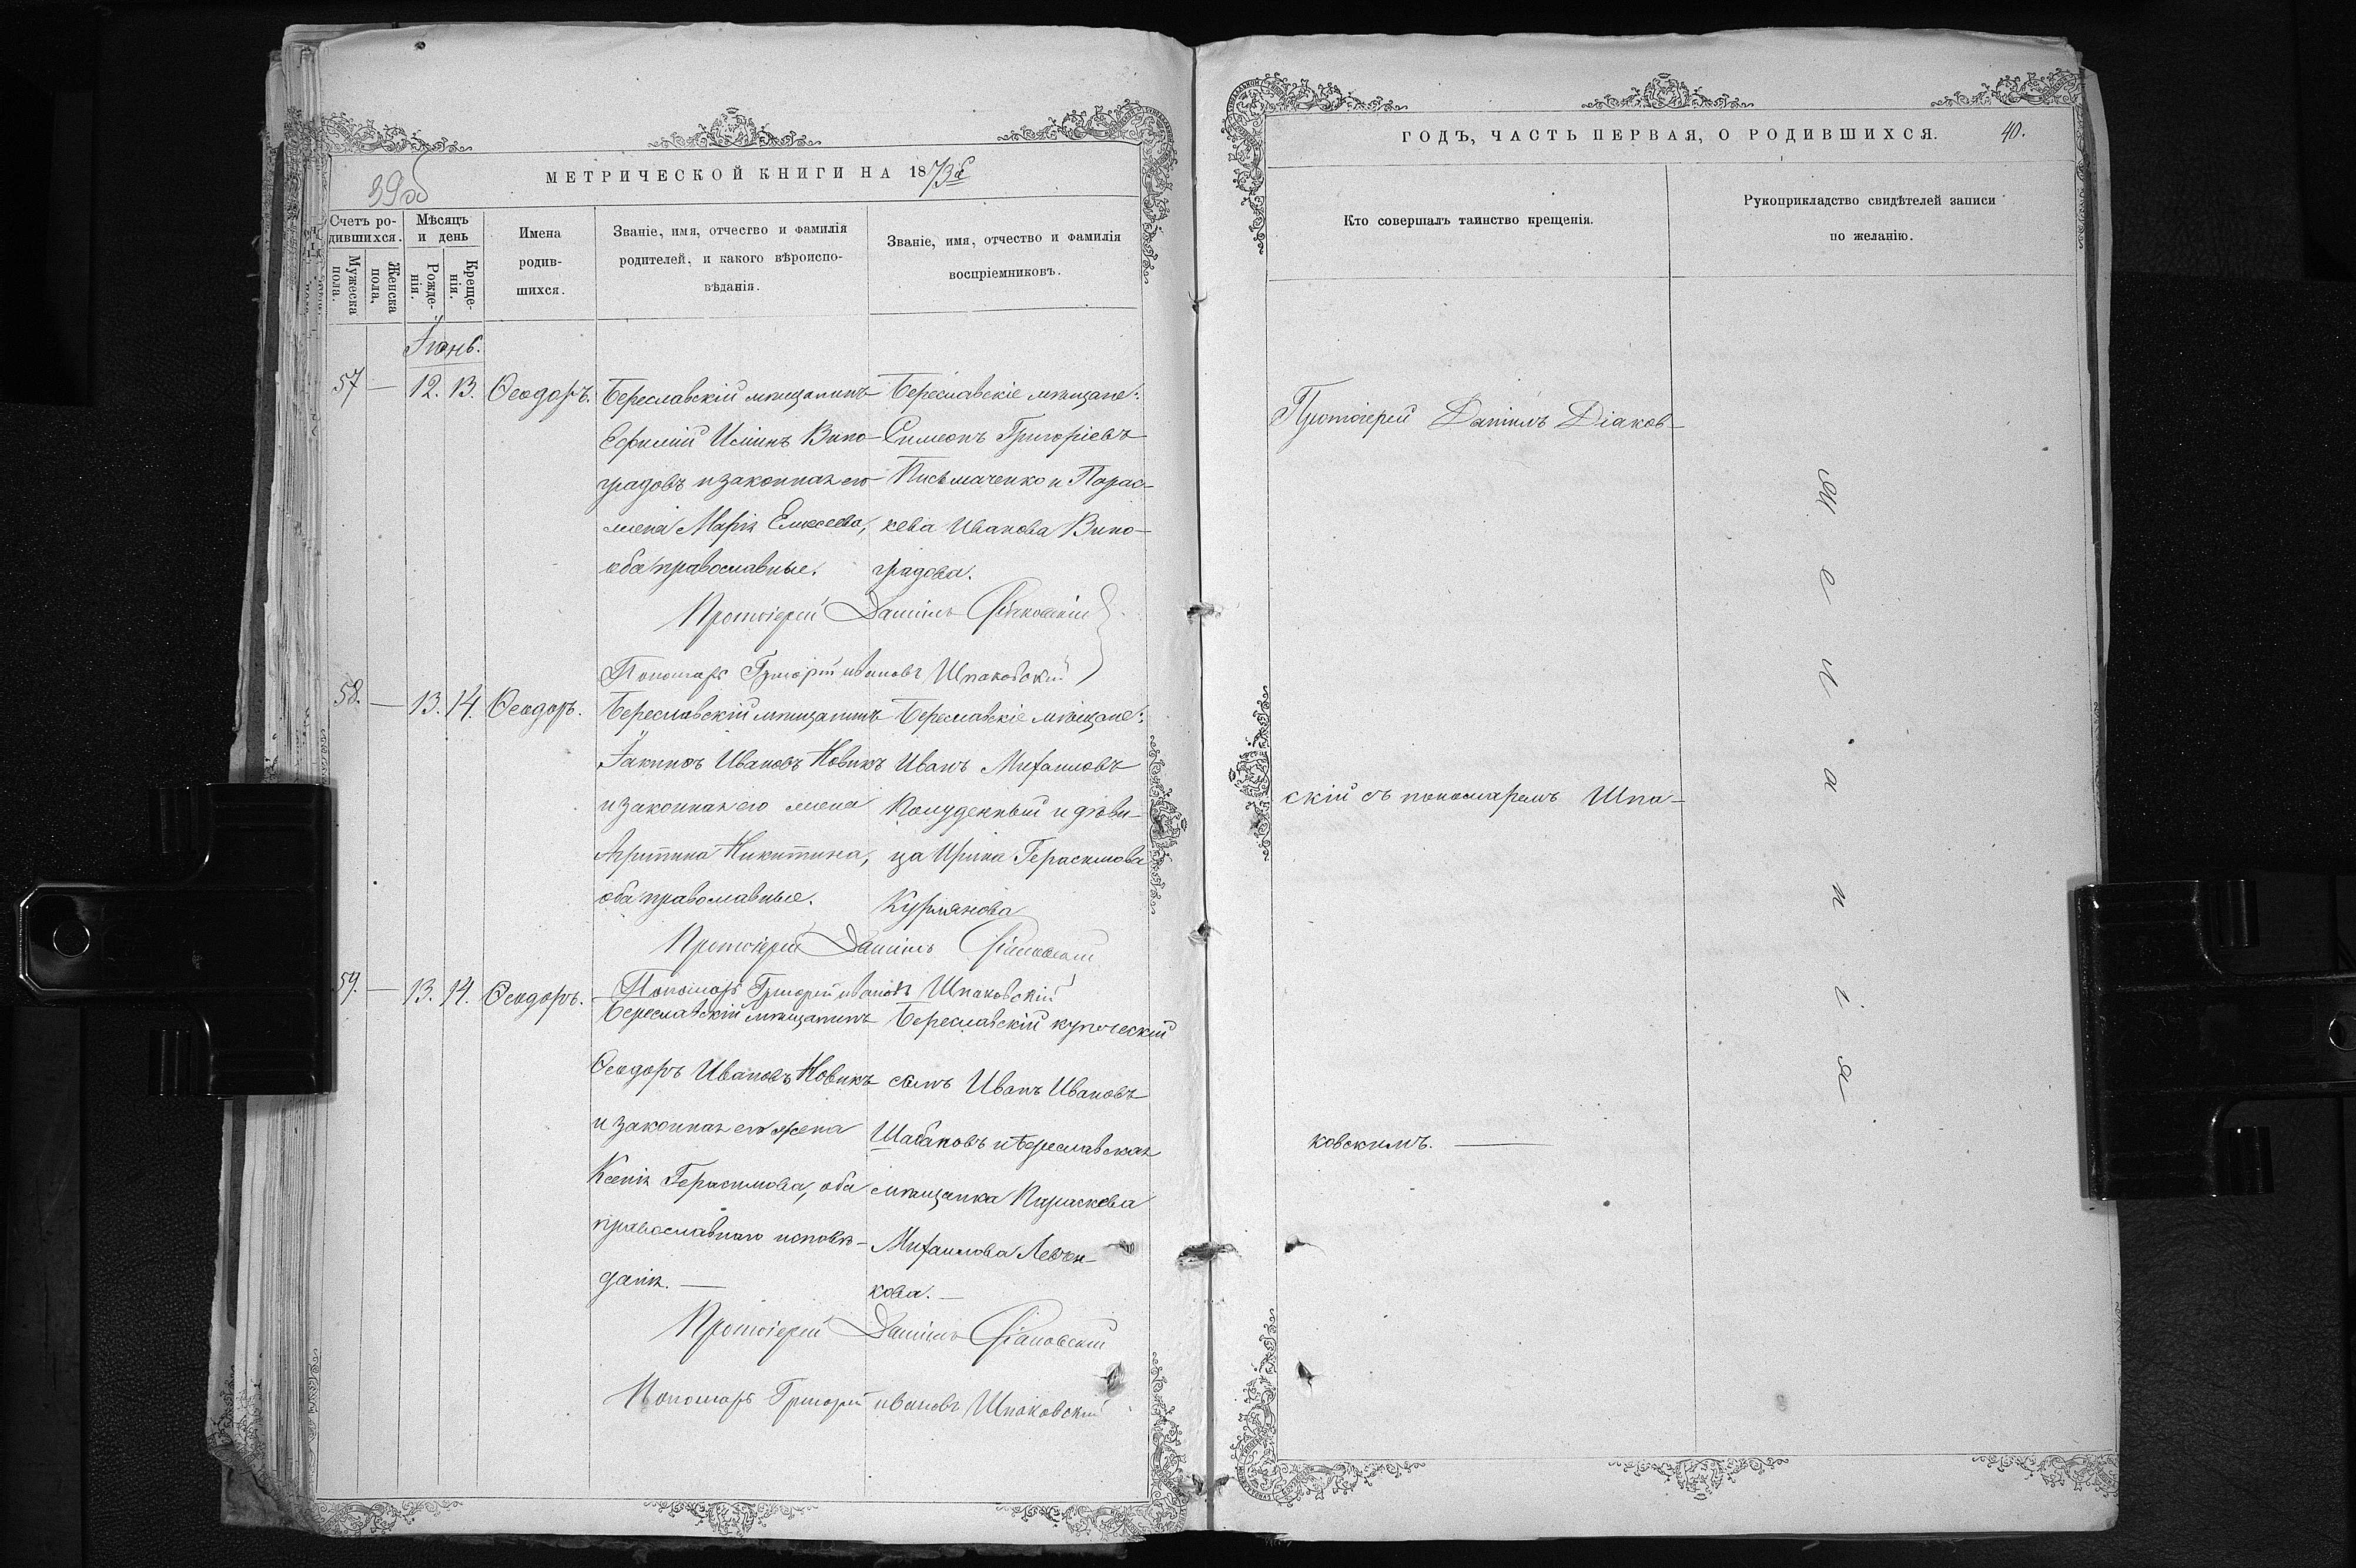 39об
МЕТРИЧЕСКОЙ КНИГИ НА 1873й
Счетъ ро-
дившихся.
Мужеска
пола.
Женска
пола.
Мѣсяцъ
и день
Рожде-
нія.
Креще-
нія.
Имена
родив-
шихся.
Званіе, имя, отчество и фамилія
родителей, и какого вѣроиспо-
вѣданія.
Званіе, имя, отчество и фамилія
воспріемниковъ.
Іюнь.
57 — 12. 13. Ѳеодоръ.
Береславскій мѣщанинъ
Ефимій Исіинъ Вино-
градовъ и законная его
жена Марія Елисеева,
оба православные.
Береславскіе мѣщане:
Симеонъ Григоріевъ
Письмаченко и Парас-
кева Иванова Вино-
градова.
Протоіерей Даніилъ Діаковскій
Пономарь Григорій Ивановъ Шпаковскій
58. — 13. 14. Ѳеодоръ.
Береславскій мѣщанинъ
Іакинѳъ Ивановъ Новикъ
и законная его жена
Агрипина Никитина,
оба православные.
Береславскіе мѣщане:
Иванъ Михаиловъ
Полуденный и дѣви-
ца Ирина Герасимова
Курлянова
Протоіерей Даніилъ Діаковскій
Пономарь Григорій Ивановъ Шпаковскій
59. — 13. 14. Ѳеодоръ.
Береславскій мѣщанинъ
Ѳеодоръ Ивановъ Новикъ
и законная его жена
Ксенія Герасимова, оба
православнаго исповѣ-
данія. —
Береславскій купеческій
сынъ Иванъ Ивановъ
Шабановъ и Береславская
мѣщанка Параскева
Михаилова
кова. —
Протоіерей Даніилъ Діаковскій
Пономарь Григорій Ивановъ Шпаковскій
ГОДЪ, ЧАСТЬ ПЕРВАЯ, О РОДИВШИХСЯ.
40.
Кто совершалъ таинство крещенія.
Рукоприкладство свидѣтелей записи
по желанію.
Протоіерей Даніилъ Діаков-
скій съ пономаремъ Шпа-
ковскимъ. —
Желанія